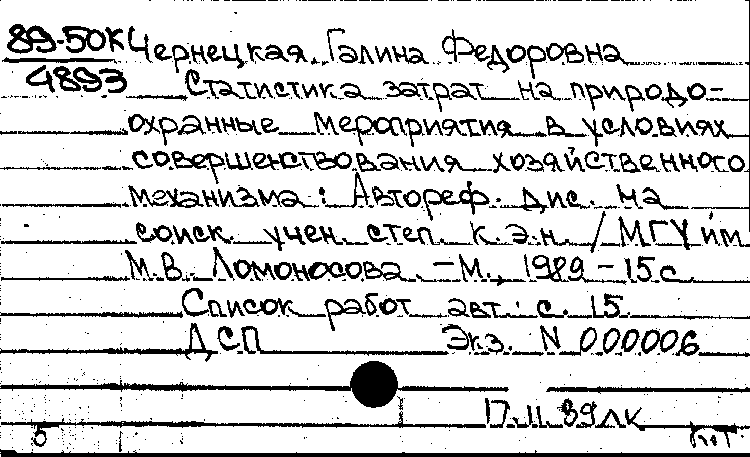 89-50К Чернецкая Галина Федоровна
4893 Статистика затрат на природо-
охранные мероприятия в условиях
совершенствования хозяйственного
механизма: Автореф. дис. на
соиск. учен. степ. к.э.н. / МГУ им
М.В. Ломоносова. - М., 1989 - 15 с
Список работ авт.: с. 15
ДСП Экз. N 000006
17.11.89 ЛК
5